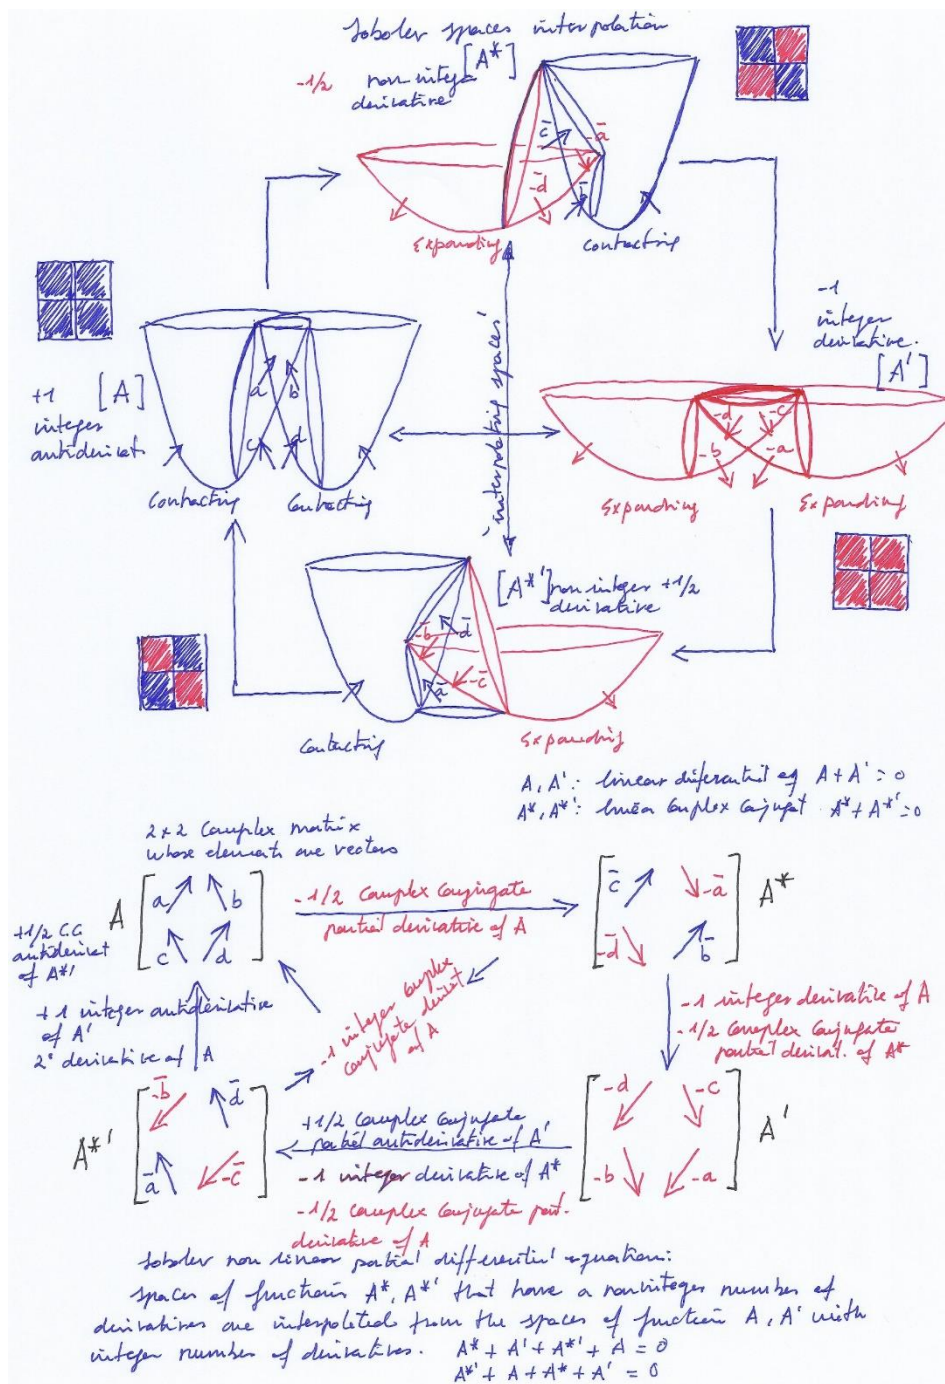 Sobolev spaces interpolation
-1/2 non-integer [A*]
derivative
c̄ -ā
-d̄ b̄
Expanding Contracting
-1
integer
derivative.
[A']
+1 [A]
integer
antiderivat.
a b
c d
-d -c
-b -a
Contracting Contracting
'interpolating spaces'
Expanding Expanding
[A*'] non-integer +1/2
derivative
-b̄ d̄
ā -c̄
Contracting Expanding
A, A': linear diferential of A + A' = 0
A*, A*': linear complex conjugat. A* + A*' = 0
2×2 Complex matrix
whose elements are vectors
A [a b c d]
-1/2 Complex Conjugate
partial derivative of A
[c̄ -ā -d̄ b̄] A*
+1/2 C.C
antiderivat
of A*'
+1 integer antiderivative
of A'
2° derivative of A
-1 integer Complex
Conjugate derivat
of A
-1 integer derivative of A
-1/2 Complex Conjugate
partial derivat. of A*
A*' [-b̄ d̄ ā -c̄]
+1/2 Complex Conjugate
partial antiderivative of A'
-1 integer derivative of A*
-1/2 Complex Conjugate part.
derivative of A
[-d -c -b -a] A'
Sobolev non linear partial differential equation:
spaces of functions A*, A*' that have a noninteger number of
derivatives are interpolated from the spaces of function A, A' with
integer number of derivatives. A* + A' + A*' + A = 0
A*' + A + A* + A' = 0